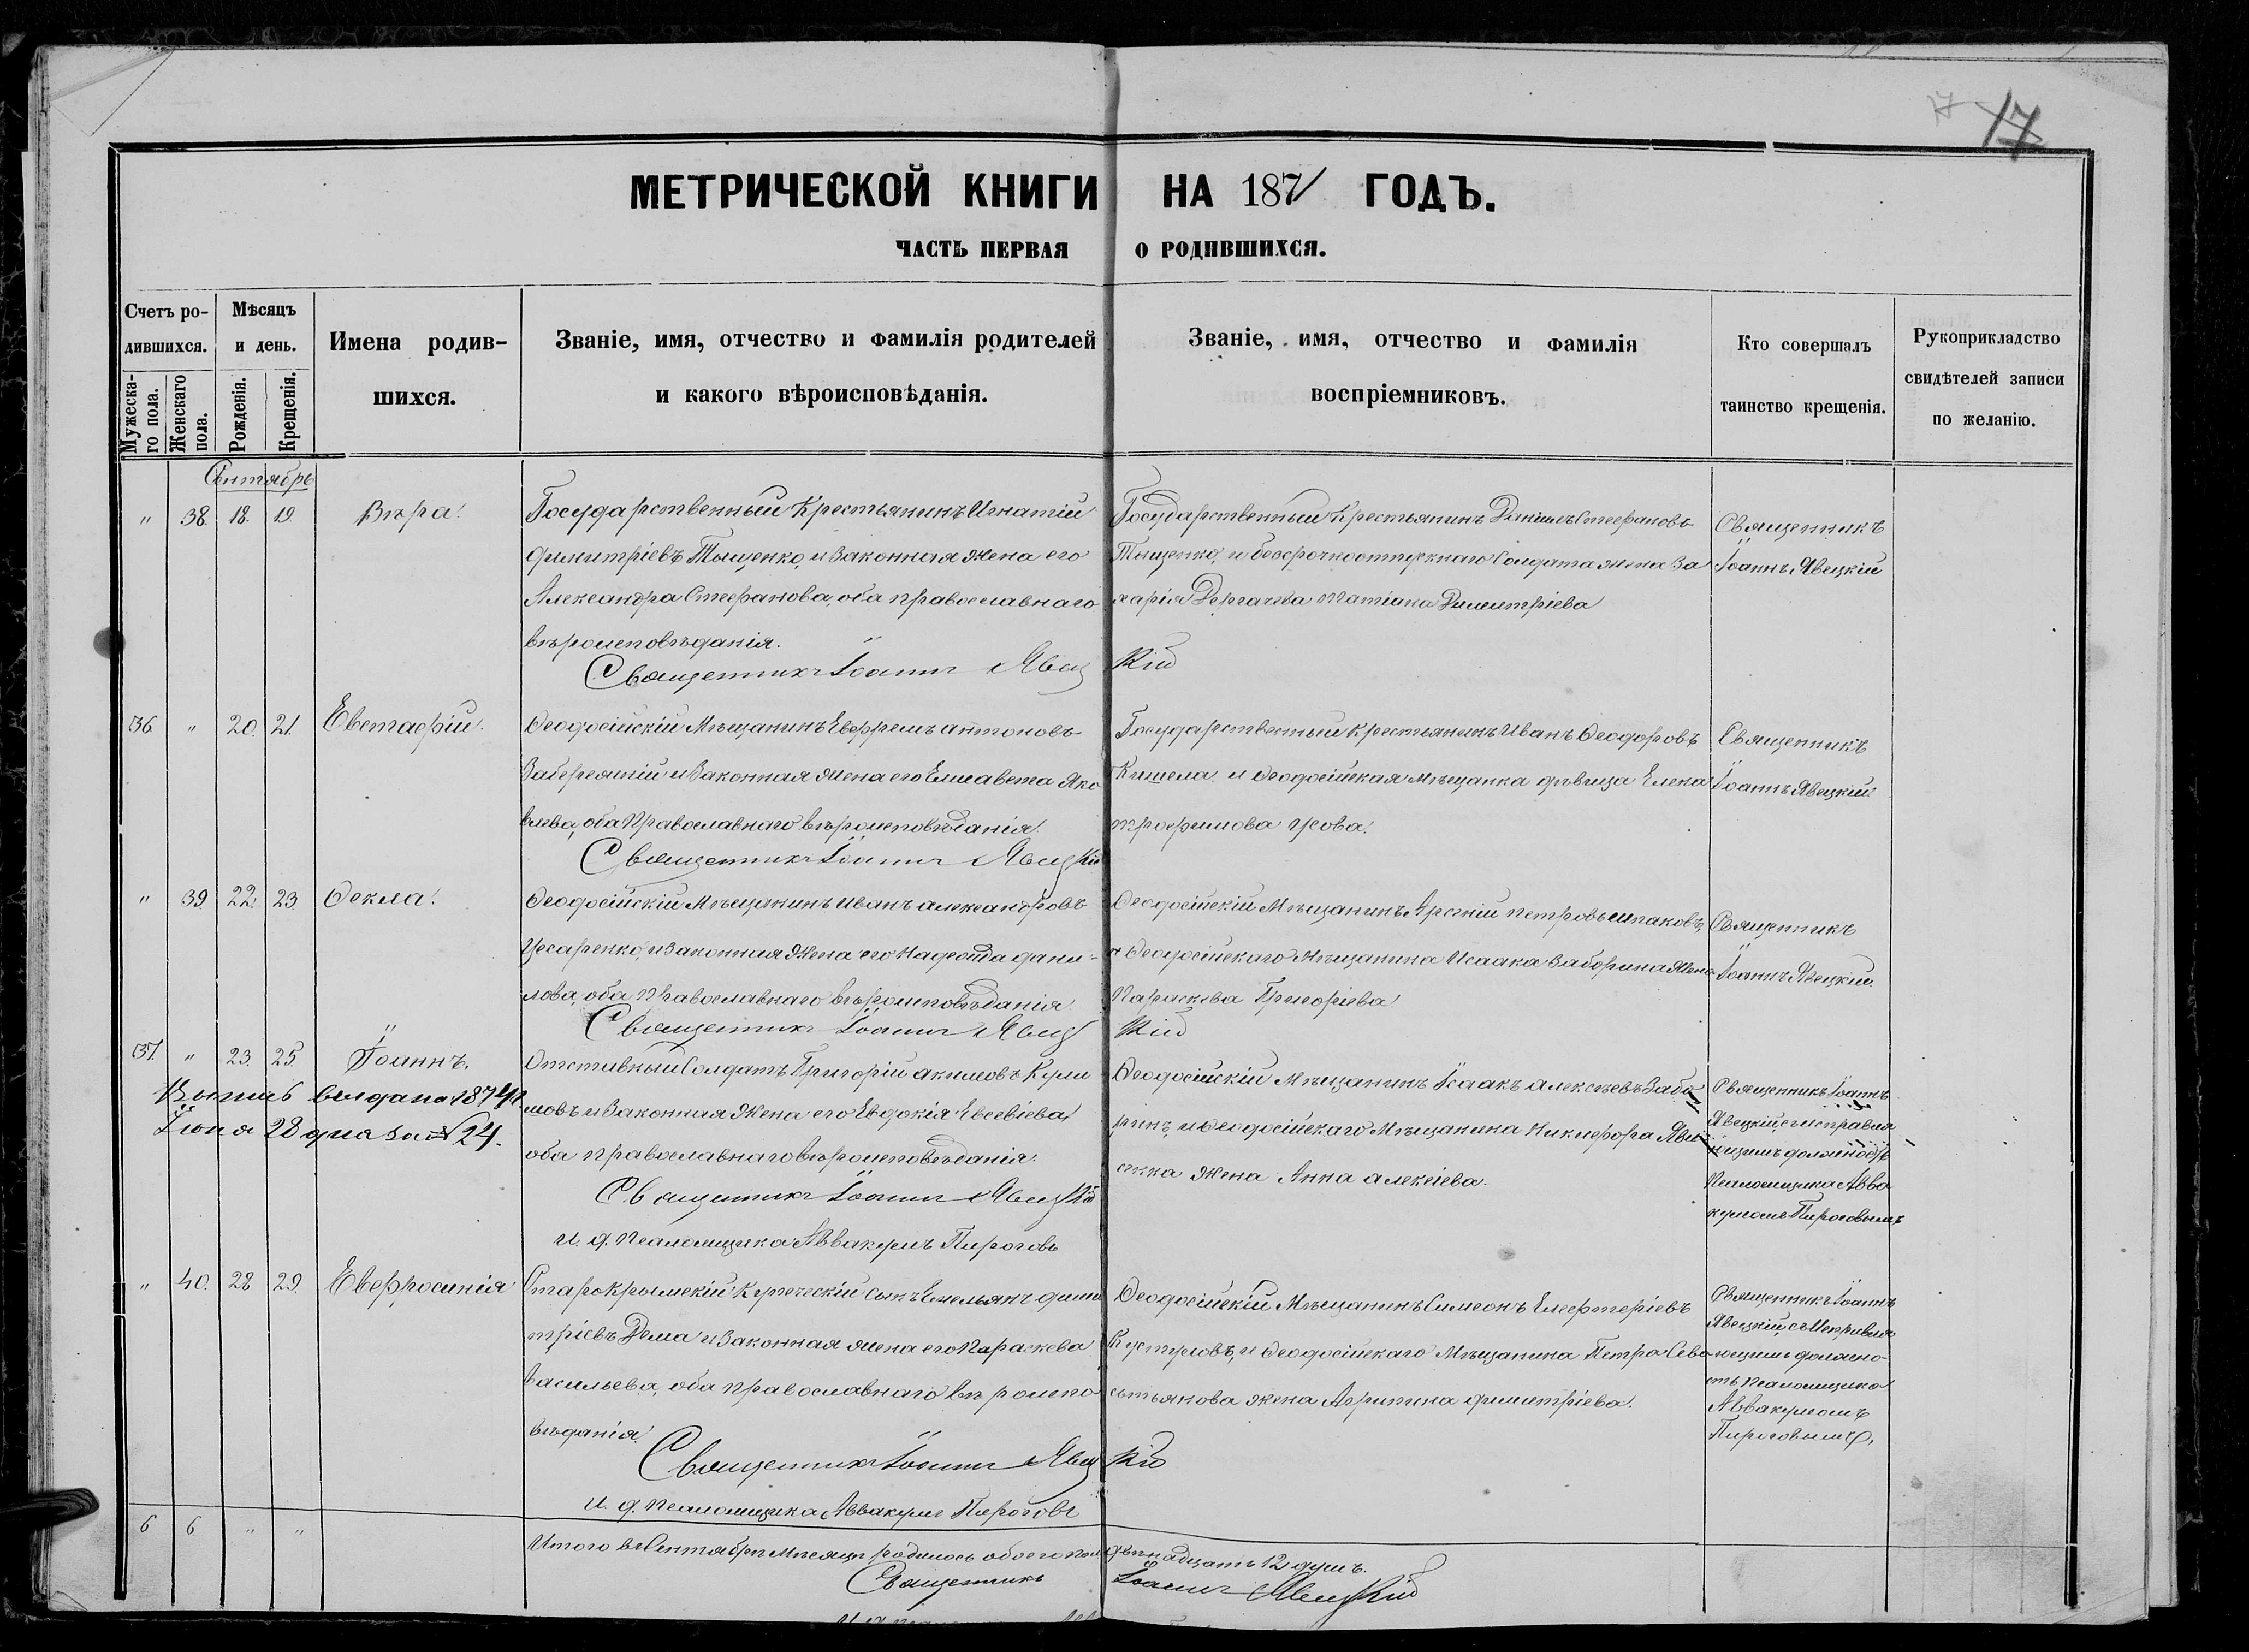 17
17
МЕТРИЧЕСКОЙ КНИГИ НА 1871 ГОДЪ.
ЧАСТЬ ПЕРВАЯ О РОДИВШИХСЯ.
Счетъ ро-
дившихся.
Мужеска-
го пола.
Женскаго
пола.
Мѣсяцъ
и день.
Рожденія.
Крещенія.
Имена родив-
шихся.
Званіе, имя, отчество и фамилія родителей
и какого вѣроисповѣданія.
Званіе, имя, отчество и фамилія
воспріемниковъ.
Кто совершалъ
таинство крещенія.
Рукоприкладство
свидѣтелей записи
по желанію.
Сентябрь
" 38. 18. 19. Вѣра.
Государственный Крестьянинъ Игнатій
Димитріевъ Тыщенко, и Законная жена его
Александра Стефанова, оба православнаго
вѣроисповѣданія.
Священникъ Іоаннъ Явецкій
Государственный Крестьянинъ Стефановъ
Тыщенко, и безсрочноотпускнаго Солдата жена За
харія Дергачева Татіана Димитріева
Священникъ
Іоаннъ Явецкій
36. " 20. 21. Евстафій.
Ѳеодосійскій Мѣщанинъ Евфремъ антоновъ
и Законная жена его Елисавета Яко
влева, оба Православнаго вѣроисповѣданія.
Священникъ Іоаннъ Явецкій
Государственный крестьянинъ Иванъ Ѳеодоровъ
Кишела и Ѳеодосійская Мѣщанка дѣвица Елена
трофимова Усова.
Священникъ
Іоаннъ Явецкій
" 39. 22. 23. Ѳекла.
Ѳеодосійскій Мѣщанинъ Иванъ александровъ
Цесаренко, и Законная Жена его дани-
лова, оба Православнаго вѣроисповѣданія
Священникъ Іоаннъ Явецкій
Ѳеодосійскій Мѣщанинъ Арсеній петровъ шпаковъ,
и Ѳеодосійскаго Мѣщанина Исаака Заборина Жена
Параскева Григоріева
Священникъ
Іоаннъ Явецкій
37. " 23. 25. Іоаннъ.
Выпись выдана 1874
Іюня 28 дня за № 24.
Отставный Солдатъ Григорій акимовъ Кули
шовъ и Законная Жена его Евдокія Евсевіева,
оба православнаго вѣроисповѣданія.
Священникъ Іоаннъ Явецкій
И. д. Псаломщика Аввакумъ Пироговъ
Ѳеодосійскій Мѣщанинъ Ісаакъ алексѣевъ Забо
ринъ, и Ѳеодосійскаго Мѣщанина Никифора
жена Анна алексіева.
Священникъ Іоаннъ
Явецкій, съ исправля
ющимъ должность
Псаломщика Авва
кумомъ Пироговымъ
" 40. 28. 29. Евфросинія
Старокрымскій Купеческій сынъ Емельянъ дими
тріевъ Дема и Законная жена его Параскева
Васильева, оба православнаго вѣроиспо
вѣданія.
Священникъ Іоаннъ Явецкій
И. д. Псаломщика Аввакумъ Пироговъ
Ѳеодосійскій Мѣщанинъ Симеонъ Елефтеріевъ
и Ѳеодосійскаго Мѣщанина Петра Сева
стьянова жена Агрипина димитріева.
Священникъ Іоаннъ
Явецкій, съ исправля
ющимъ должно-
сть Псаломщика
Аввакумомъ
Пироговымъ,
6 6 " "
Итого въ Сентябрѣ Мѣсяцѣ родилось обоего пола двѣнадцать 12 душъ.
Священникъ Іоаннъ Явецкій